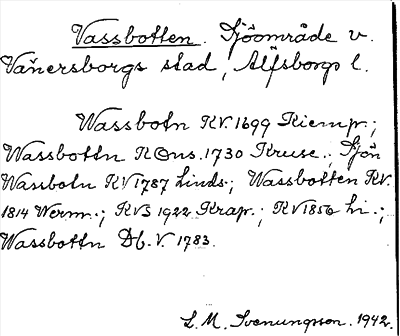 Vassbotten. Sjöområde v.
Vänersborgs stad, Älfsborgs l.
Wassbotn KV. 1699 Kiempr;
Wassbottn KOns. 1730 Kruse.; Sjön
Wassbotn KV 1787 Linds.; Wassbotten KV.
1814 Werm.; KVS 1922 Krap.; KV 1856 Li.;
Wassbottn Db. V. 1783.
L. M. Svenungson. 1942.